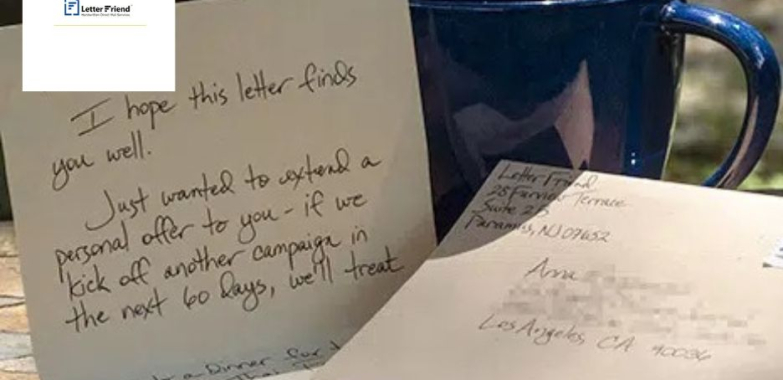 Letter Friend
I hope this letter finds
you well.
Just wanted to extend a
personal offer to you - if we
kick off another campaign in
the next 60 days, we'll treat
a Dinner for
Letter Friend
25 Fairview Terrace
Suite 25
Paramus, NJ 07652
Anna
Los Angeles, CA 90036